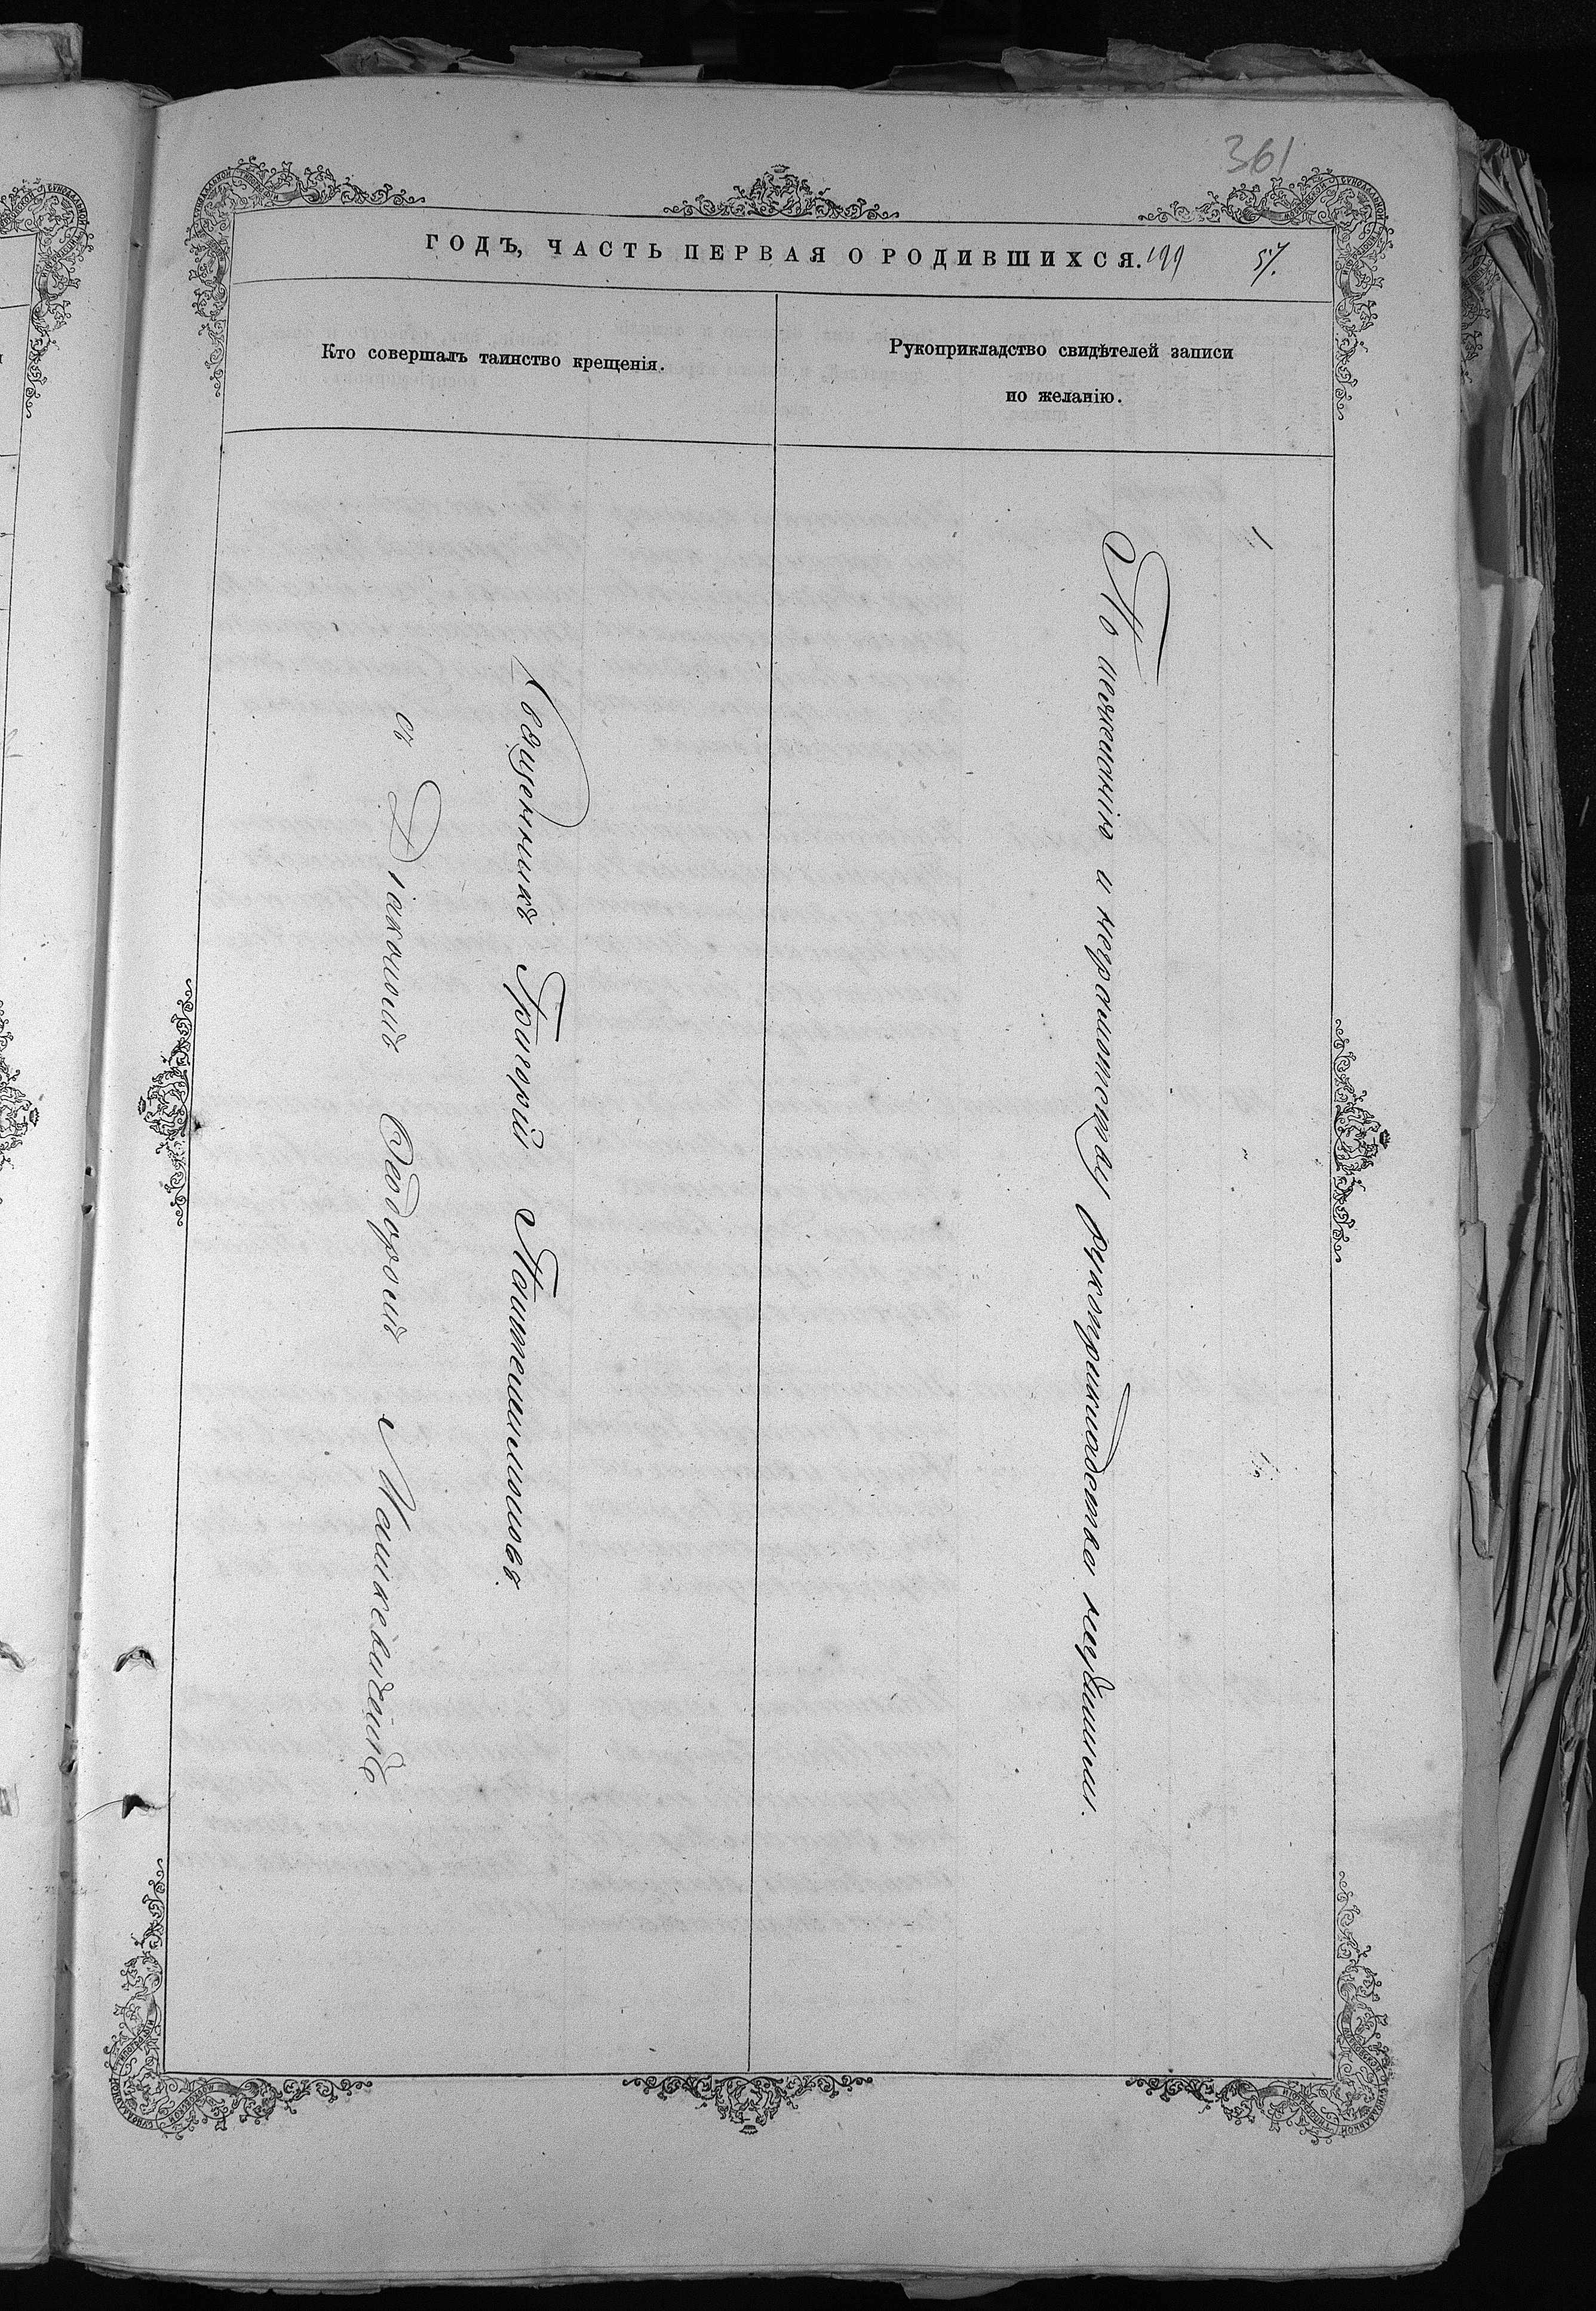 361
ГОДЪ, ЧАСТЬ ПЕРВАЯ О РОДИВШИХСЯ. 199 57.
Кто совершалъ таинство крещенія.
Рукоприкладство свидѣтелей записи
по желанію.
Священникъ Григорій
съ Діакономъ Ѳеодоромъ Мацкевичемъ
По нежеланію и неграмотству рукоприкладства неучинили.